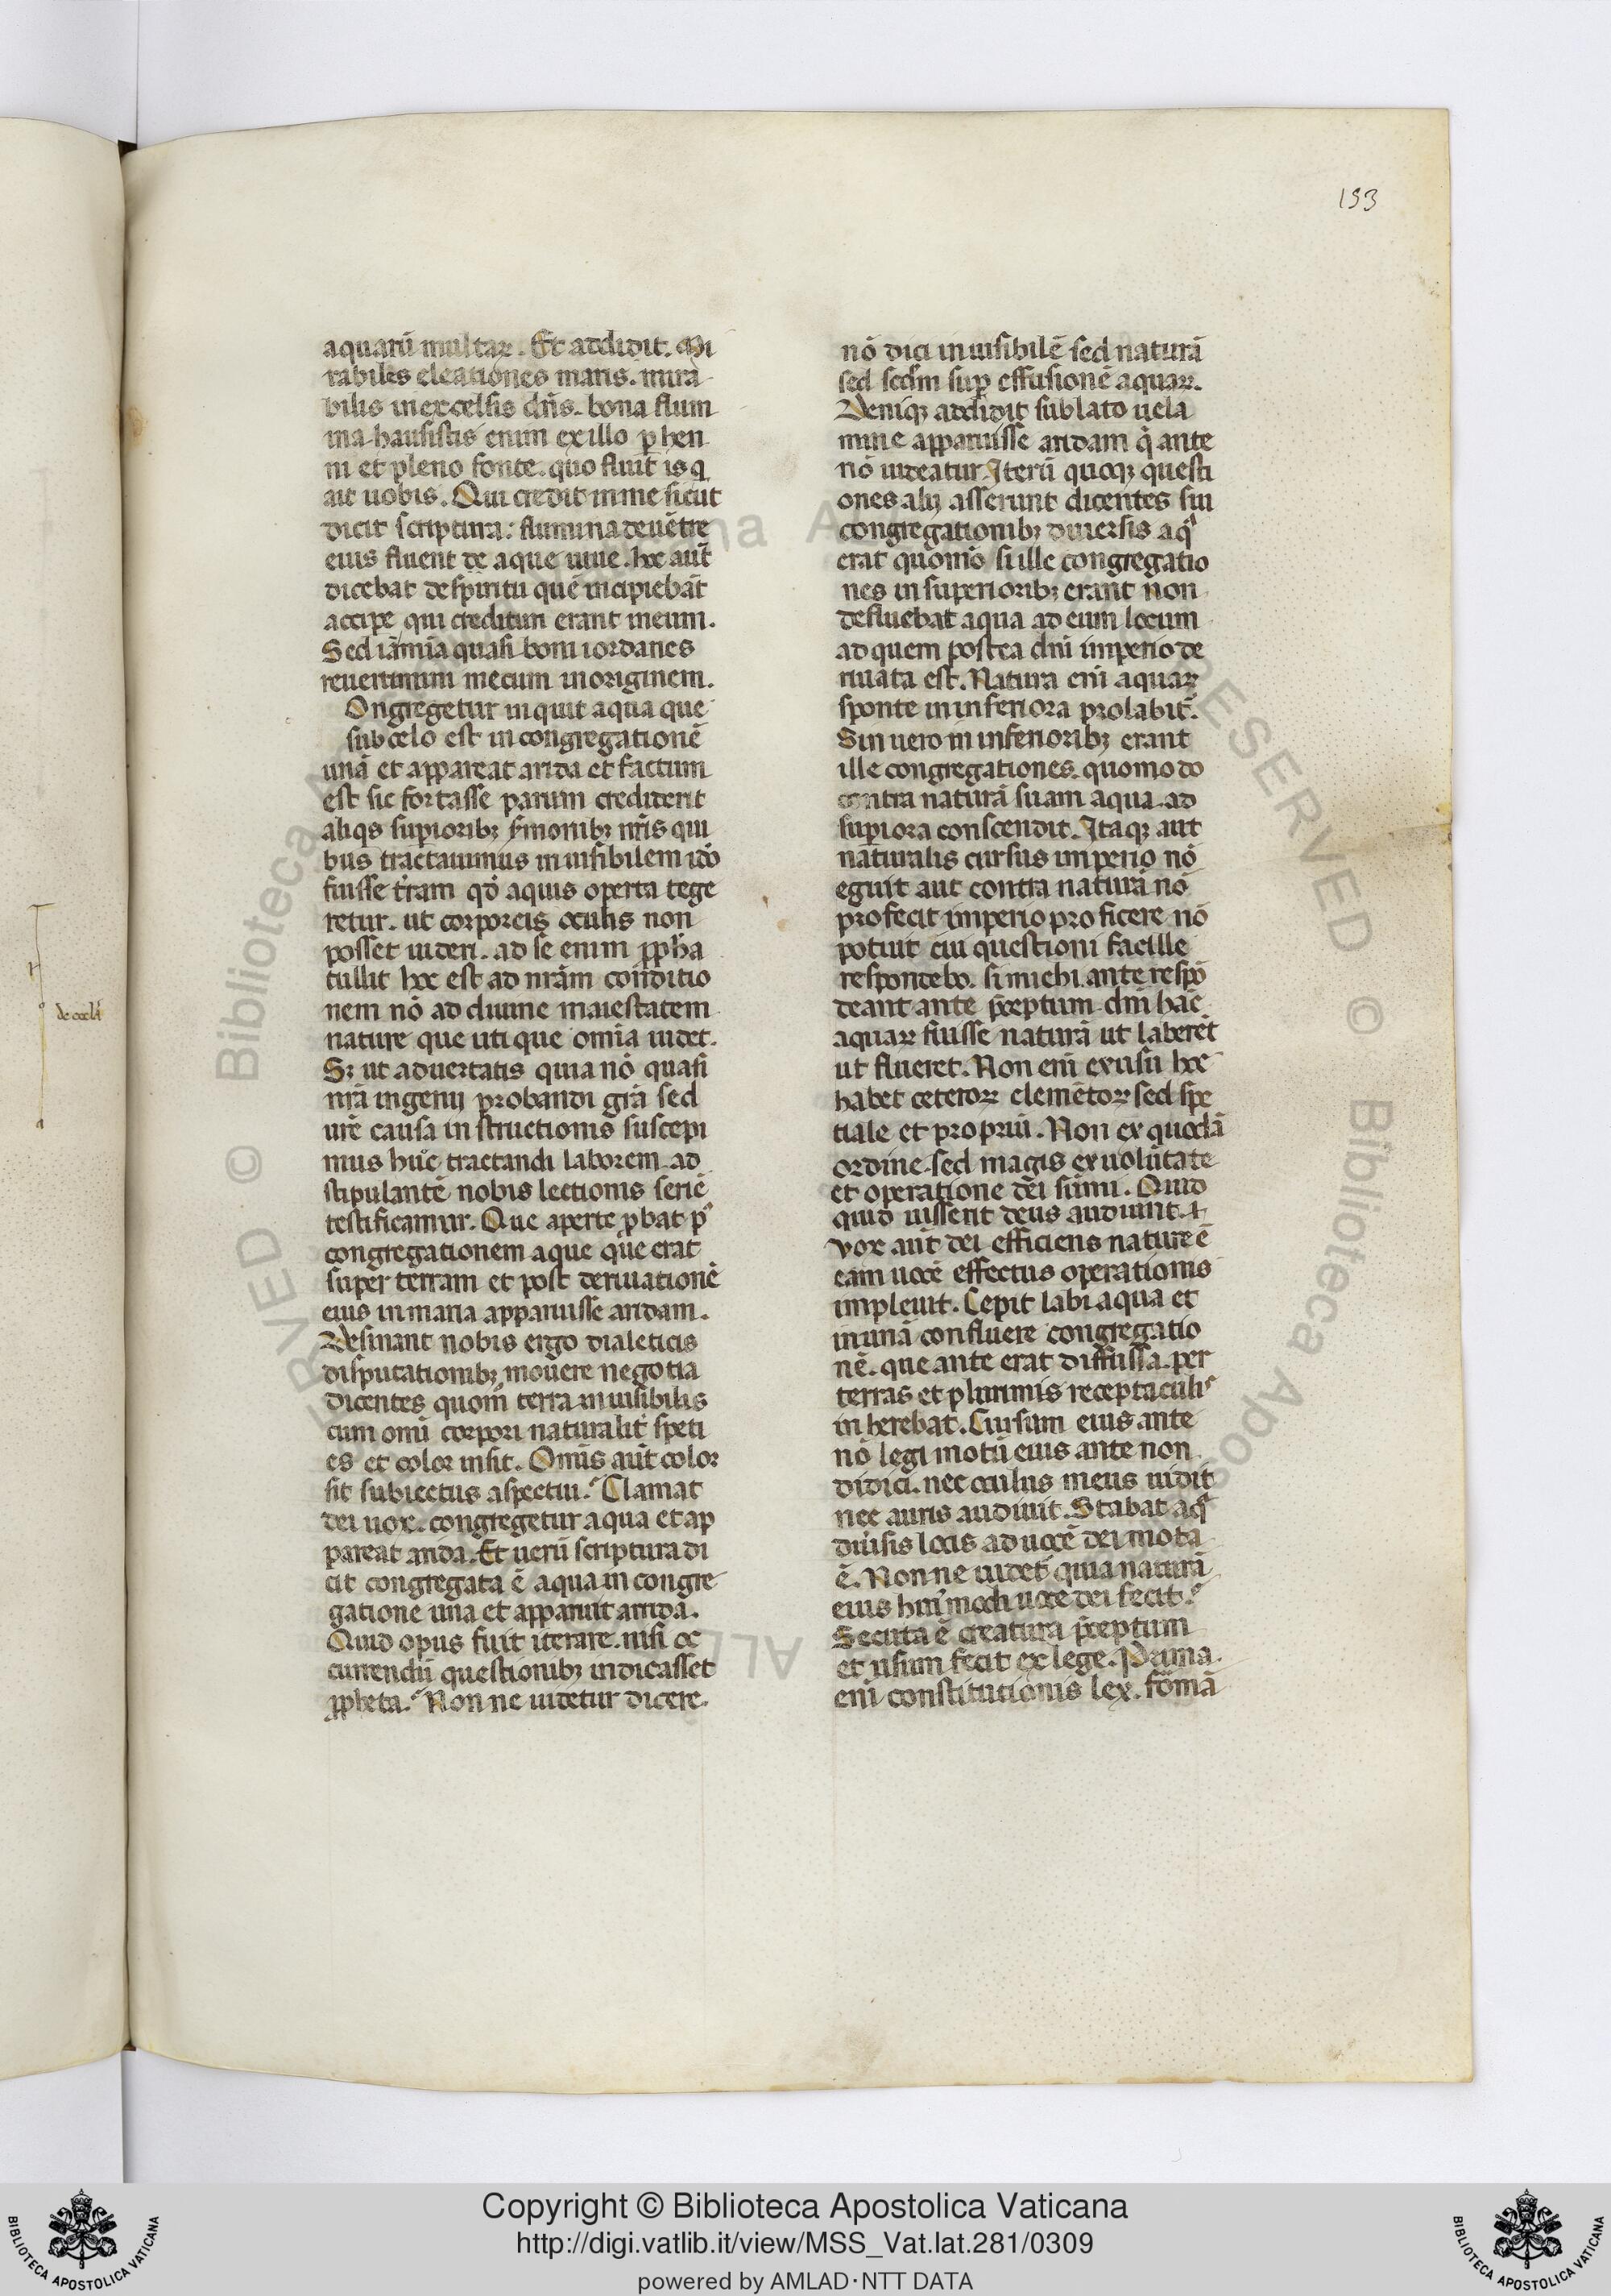 153
aquarū multaꝝ. Et addidit. Mi
rabiles eleationes maris. mira
bilis in excelsis dn̄s. bona flum
ina hausistis enim ex illo ꝑhen
ni et pleno fonte. quo fluit is q̇
ait uobis. Qui credit in me sicut
dicit scriptura: flumina de uētre
eius fluent de aque uiue. hoc aut̄
dicebat de spiritu quē incipiebāt
accipe, qui credituri erant in eum.
Sed iā mīa quasi boni iordanes
reuertimini mecum in originem.
Ongregetur inquit aqua que
sub celo est in congregationē
unā et appareat arida et factum
est sic fortasse parum crediderit
aliq̄s supioribꝫ s̄monibꝫ nr̄is qui
bus tractauimus inuisibilem ido
fuisse t̄ram qđ aquis operta tege
retur. ut corporeis oculis non
posset uideri. ad se enim ꝓpha
tullit hoc est ad nrām conditio
nem nō ad diuine maiestatem
nature que utique omīa uidet.
Sꝫ ut aduertatis quia nō quasi
nrā ingenij probandi grā sed
ure causa instructionis suscepi
mus hūc tractandi laborem ad
stipulantē nobis lectionis seriē
testificamur. Que aperte ꝓbat pꝰ
congregationem aque que erat
super terram et post deriuationē
eius in maria apparuisse aridam.
Desinant nobis ergo dialeticis
disputationibꝫ mouere negotia
dicentes quom̄ terra inuisibilis
cum omī corpori naturalit̄ speti
es et color insit. Omīs aut̄ color
sit subiectus aspectui. Clamat
dei uox. congregetur aqua et ap
pareat arida. Et uerū scriptura di
cit congregata ē aqua in congre
gatione una et apparuit arrida.
Quid opus fuit iterare. nisi oc
currendū questionibꝫ indicasset
ꝓpheta. Non ne uidetur dicere.
nō dici inuisibilē sed naturā
sed scdm sup effusionē aquaꝝ.
Deniqꝫ addidit sublato uela
mine apparuisse aridam q̄ ante
nō uideatur. Iterū quoqꝫ questi
ones alij asserunt dicentes sin
congregationibꝫ diuersis aqᷓ
erat quomō si ille congregatio
nes in superioribꝫ erant non
defluebat aqua ad eum locum
ad quem postea dni imperio de
riuata est. Natura enī aquaꝝ
sponte in inferiora prolabit̄.
Sin uero in inferioribꝫ erant
ille congregationes. quomodo
contra naturā suam aqua ad
supiora conscendit. Itaqꝫ aut
naturalis cursus imperio nō
eguit aut contra naturā nō
profecit imperio proficere nō
potuit cui questioni facille
respondebo. si michi ante respō
deant ante p̄ceptum dni hāc
aquaꝝ fuisse naturā ut laberet̄
ut flueret. Non enī ex usu hoc
habet ceteroꝝ elemētoꝝ sed spe
tiale et propriū. Non ex quodā
ordine. sed magis ex uolūtate
et operatione dēi sūmi. Quid
quid iusserit deus audiunt. ⁊
vox aut̄ dei efficiens nature ē
eam uocē effectus operationis
impleuit. Cepit labi aqua et
in unā confluere congregatio
nē. que ante erat diffussa. per
terras et plurimis receptaculiˢ
inherebat. Cursum eius ante
nō legi motū eius ante non
didici. nec oculus meus uidit
nec auris audiuit. Stabat aqᷓ
diuisis locis ad uocē dei mota
ē. Non ne uidet̄ quia naturā
eius huīmodi uoce dei fecit.
Secuta ē creatura p̄ceptum
et usum fecit ex lege. Prima.
enī constitutionis lex. formā
de celi
Copyright © Biblioteca Apostolica Vaticana
http://digi.vatlib.it/view/MSS_Vat.lat.281/0309
powered by AMLAD·NTT DATA